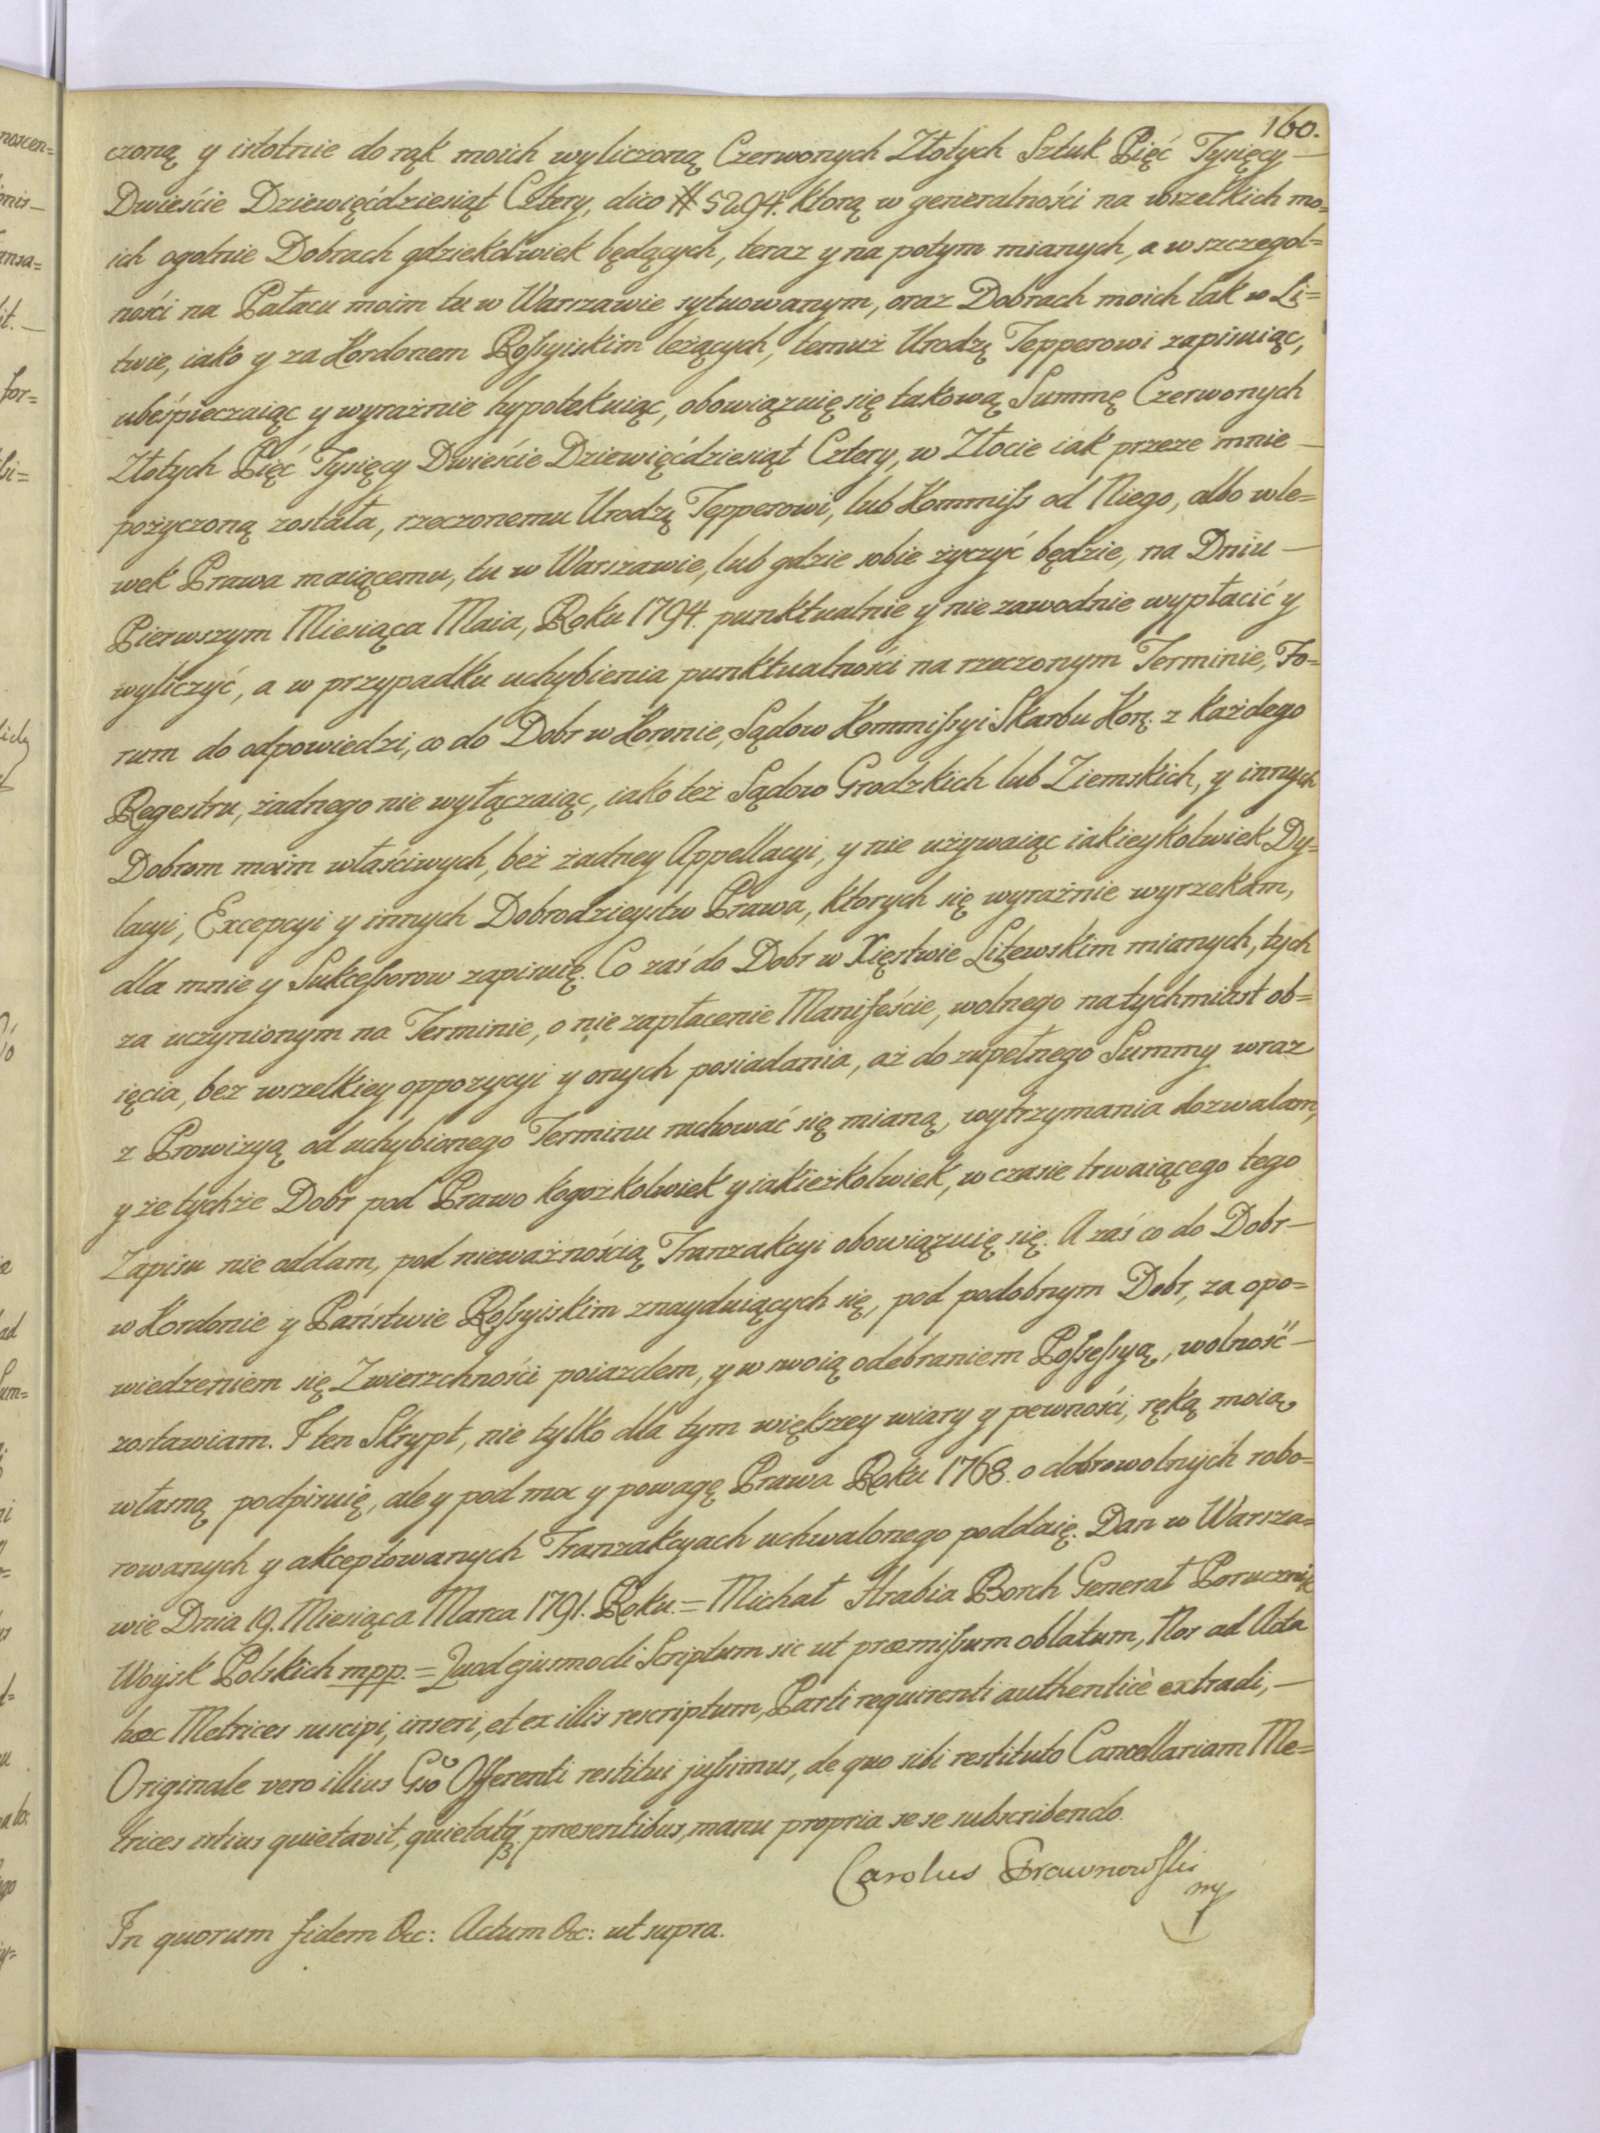 160.
czoną y istotnie do rąk moich wyliczoną Czerwonych Złotych Sztuk Pięć Tysięcy —
Dwieście Dziewięćdziesiąt Cztery, dico # 5294. którą w generalności na wszelkich mo=
ich ogolnie Dobrach gdziekolwiek będących, teraz y na potym mianych, a w szczegol=
ności na Pałacu moim tu w Warszawie sytuowanym, oraz Dobrach moich tak w Li=
twie, iako y za Kordonem Rossyiskim leżących, temuż Urodz. Tepperowi zapisuiąc,
ubeśpieczaiąc y wyraźnie hypotekuiąc, obowiązuię się takową Summę Czerwonych
Złotych Pięć Tysięcy Dwieście Dziewięćdziesiąt Cztery, w Złocie iak przeze mnie —
pożyczoną została, rzeczonemu Urodz. Tepperowi, lub Kommiss od Niego, albo wle=
wek Prawa maiącemu, tu w Warszawie, lub gdzie sobie życzyć będzie, na Dniu —
Pierwszym Miesiąca Maia, Roku 1794. punktualnie y nie zawodnie wypłacić y
wyliczyć, a w przypadku uchybienia punktualności na rzeczonym Terminie, Fo=
rum do odpowiedzi, co do Dobr w Koronie, Sądow Kommissyi Skarbu Kor. z każdego
Regestru, żadnego nie wyłączaiąc, iako też Sądow Grodzkich lub Ziemskich, y innych
Dobrom moim właściwych, beż żadney Appellacyi, y nie używaiąc iakieykolwiek Dy=
lacyi, Excepcyi y innych Dobrodzieystw Prawa, ktorych się wyraźnie wyrzekam,
dla mnie y Sukcessorow zapisuię. Co zaś do Dobr w Xięstwie Litewskim mianych, tych
za uczynionym na Terminie, o nie zapłacenie Manifeście, wolnego natychmiast ob=
ięcia, bez wszelkiey oppozycyi y onych posiadania, aż do zupełnego Summy wraz
z Prowizyą od uchybionego Terminu rachować się mianą, wytrzymania dozwalam,
y że tychże Dobr pod Prawo kogożkolwiek y iakieżkolwiek, w czasie trwaiącego tego
Zapisu nie oddam, pod nieważnością Tranzakcyi obowiązuię się. A zaś co do Dobr —
w Kordonie y Państwie Rossyiskim znayduiących się, pod podobnym Dobr, za opo=
wiedzeniem się Zwierzchności poiazdem, y w swoią odebraniem Possessyą, wolność —
zostawiam. I ten Skrypt, nie tylko dla tym większey wiary y pewności, ręką moią
własną podpisuię, ale y pod moc y powagę Prawa Roku 1768. o dobrowolnych robo=
rowanych y akceptowanych Tranzakcyach uchwalonego poddaię. Dan w Warsza=
wie Dnia 19. Miesiąca Marca 1791. Roku. = Michał Hrabia Borch Generał Porucznik
Woysk Polskich mpp. = Quod ejusmodi Scriptum sic ut præmissum oblatum, Nos ad Acta
hæc Metrices suscipi, inseri, et ex illis rescriptum, Parti requirenti authenticè extradi, —
Originale vero illius Gso Offerenti restitui jussimus, de quo sibi restituto Cancellariam Me=
trices istius quietavit, quietatq. præsentibus, manu propria se se subscribendo.
Carolus
mp
In quorum fidem &c: Actum &c: ut supra.